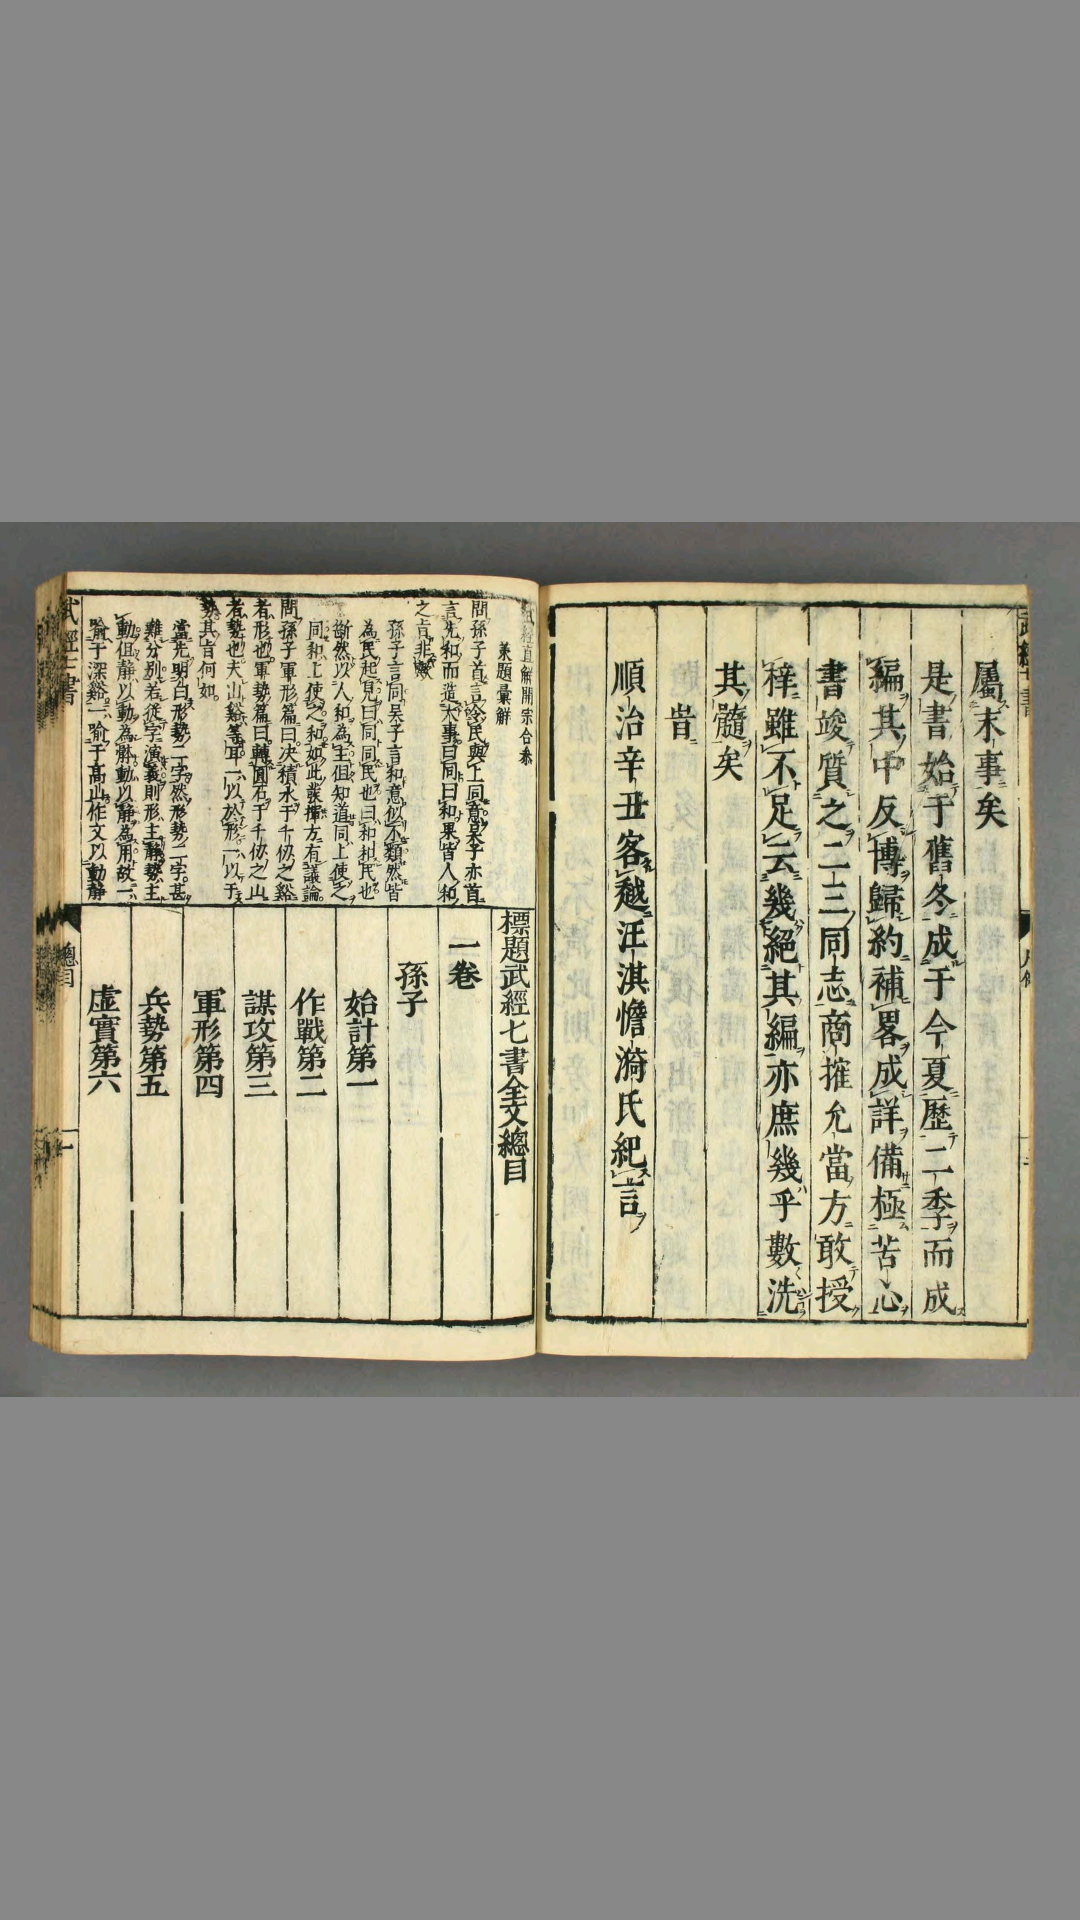 屬末事矣
是書始于舊冬成于今夏歷二季而成
編其中反博歸約補畧成詳備極苦心
書竣質之二三同志商搉允當方敢授
梓雖不足云幾絕其編亦庶幾乎數洗
其髓矣
旹
順治辛丑客越汪淇憺漪氏紀言
武經直解開宗合叅
兼題彙解
問孫子首言令民與上同意吳子亦首
言先和而造大事曰同曰和果皆人和
之旨非歟
孫子言同吳子言和意似不類然皆
為民起見曰同同民也曰和和民也
斷然以人和為主但知道同上使之
同和上使之和如此發揮方有議論
問孫子軍形篇曰决積水于千仭之谿
者形也軍勢篇曰轉圓石于千仭之山
者勢也夫山谿等耳一以於形一以于
勢其旨何如
當先明白形勢二字然形勢二字甚
難分别若從字演義則形主靜勢主
動但靜以動為體動以靜為用故一
喻于深谿一喻于髙山作文以動靜
標題武經七書全文總目
一卷
孫子
始計第一
作戰第二
謀攻第三
軍形第四
兵勢第五
虚實第六
總目
一